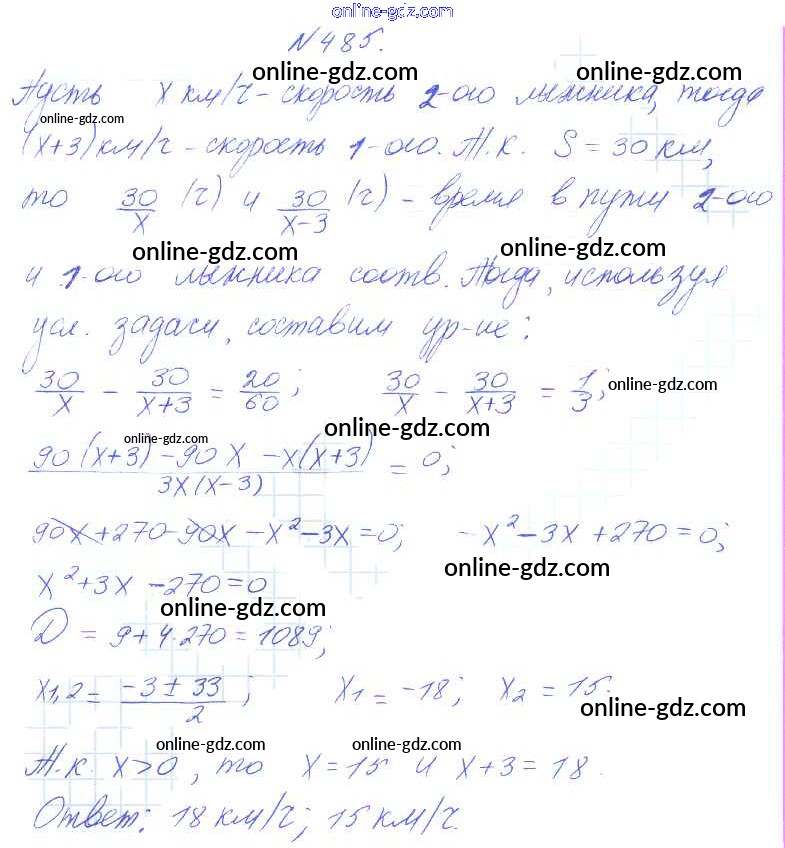 online-gdz.com
N 485.
online-gdz.com online-gdz.com
Пусть х км/ч - скорость 2-ого лыжника, тогда
online-gdz.com
(х+3) км/ч - скорость 1-ого. Т.к. S = 30 км,
то 30/х (ч) и 30/(х-3) (ч) - время в пути 2-ого
online-gdz.com online-gdz.com
и 1-ого лыжника соотв. Тогда, используя
усл. задачи, составим ур-ие:
30/х - 30/(х+3) = 20/60; 30/х - 30/(х+3) = 1/3;
online-gdz.com
online-gdz.com online-gdz.com
(90(х+3) - 90х - х(х+3))/(3х(х-3)) = 0;
90х + 270 - 90х - х² - 3х = 0; -х² - 3х + 270 = 0;
online-gdz.com
х² + 3х - 270 = 0
online-gdz.com
D = 9 + 4·270 = 1089;
х1,2 = (-3 ± 33)/2; х₁ = -18; х₂ = 15.
online-gdz.com
online-gdz.com online-gdz.com
Т.к. х > 0, то х = 15 и х + 3 = 18.
Ответ: 18 км/ч; 15 км/ч.